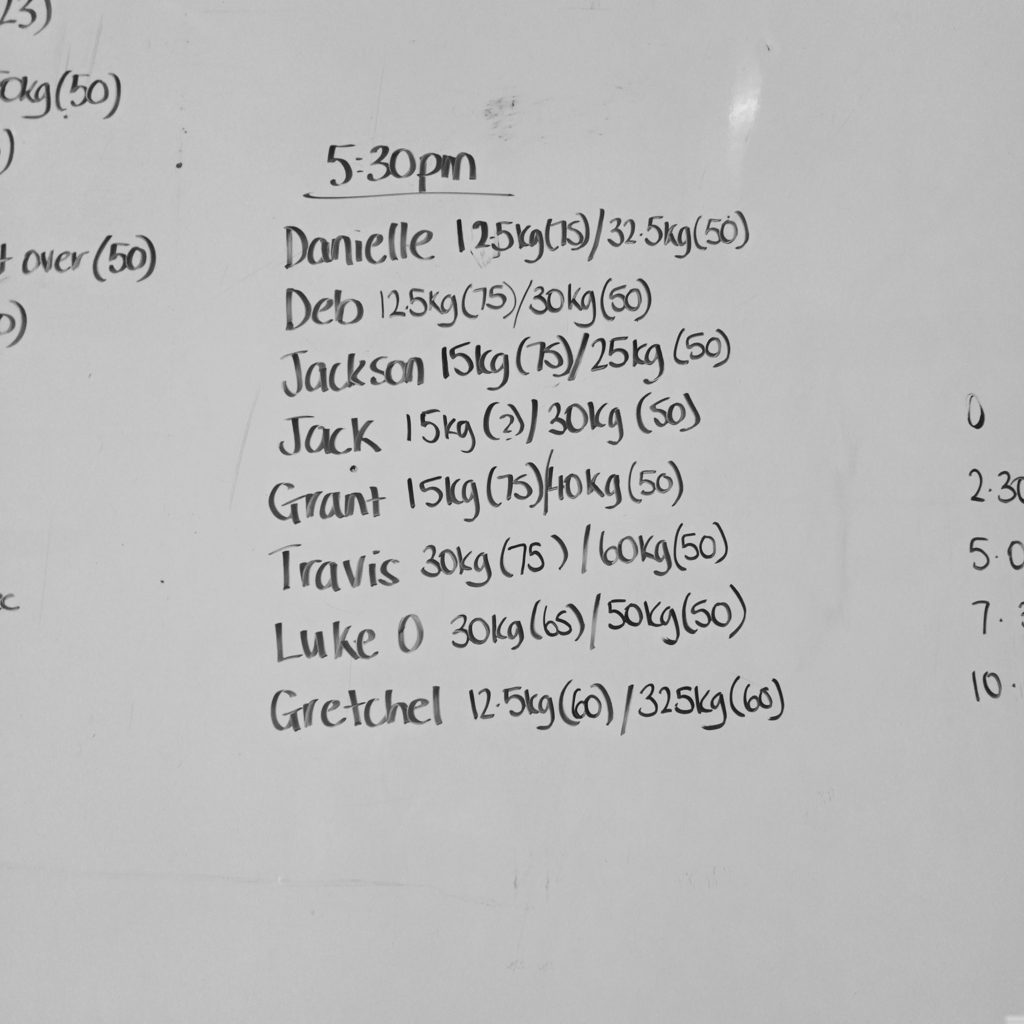 23)
0kg(50)
)
5:30pm
t over (50)
Danielle 12.5kg(75)/32.5kg(50)
Deb 12.5kg(75)/30kg(50)
Jackson 15kg(75)/25kg(50)
Jack 15kg(?)/30kg(50)
Grant 15kg(75)/40kg(50)
Travis 30kg(75)/60kg(50)
Luke O 30kg(65)/50kg(50)
Gretchel 12.5kg(60)/325kg(60)
0
2.30
5.0
7.3
10.